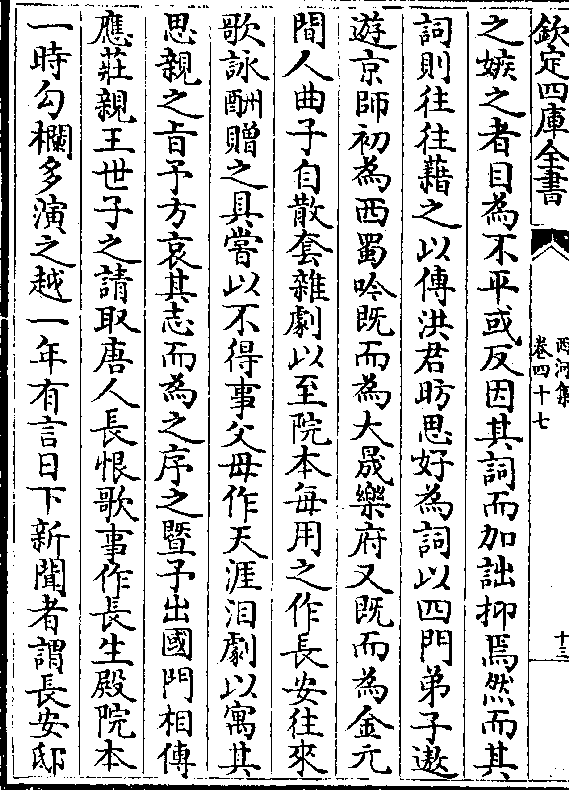 欽定四庫全書
西河集
卷四十七
十三
之嫉之者目為不平或反因其詞而加詘抑焉然而其
詞則往往藉之以傳洪君昉思好為詞以四門弟子遨
遊京師初為西蜀吟既而為大晟樂府又既而為金元
間人曲子自散套雜劇以至院本每用之作長安往來
歌詠酬贈之具嘗以不得事父母作天涯淚劇以寓其
思親之旨予方哀其志而為之序之暨予出國門相傳
應莊親王世子之請取唐人長恨歌事作長生殿院本
一時勾欄多演之越一年有言日下新聞者謂長安邸